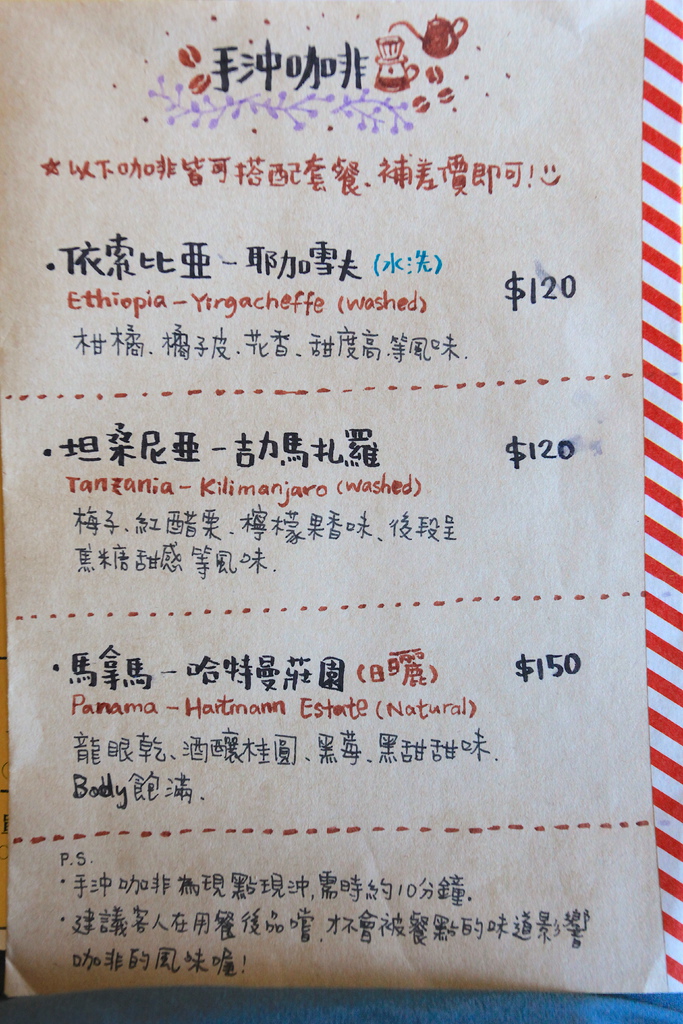 手沖咖非
★以下咖非皆可搭配套餐、補差價即可!
·依索比亞-耶加雪夫(水洗) $120
Ethiopia-Yirgacheffe (washed)
柑橘、橘子皮、花香、甜度高等風味.
·坦桑尼亞-吉力馬扎羅 $120
Tanzania-Kilimanjaro (washed)
梅子、紅醋栗、檸檬果香味、後段呈
焦糖甜感等風味.
·馬拿馬-哈特曼莊園(日曬) $150
Panama-Hartmann Estate (Natural)
龍眼乾、酒釀桂圓、黑莓、黑甜甜味.
Body飽滿.
P.S.
·手沖咖非為現點現沖,需時約10分鐘.
·建議客人在用餐後品嚐,才不會被餐點的味道影響
咖非的風味喔!